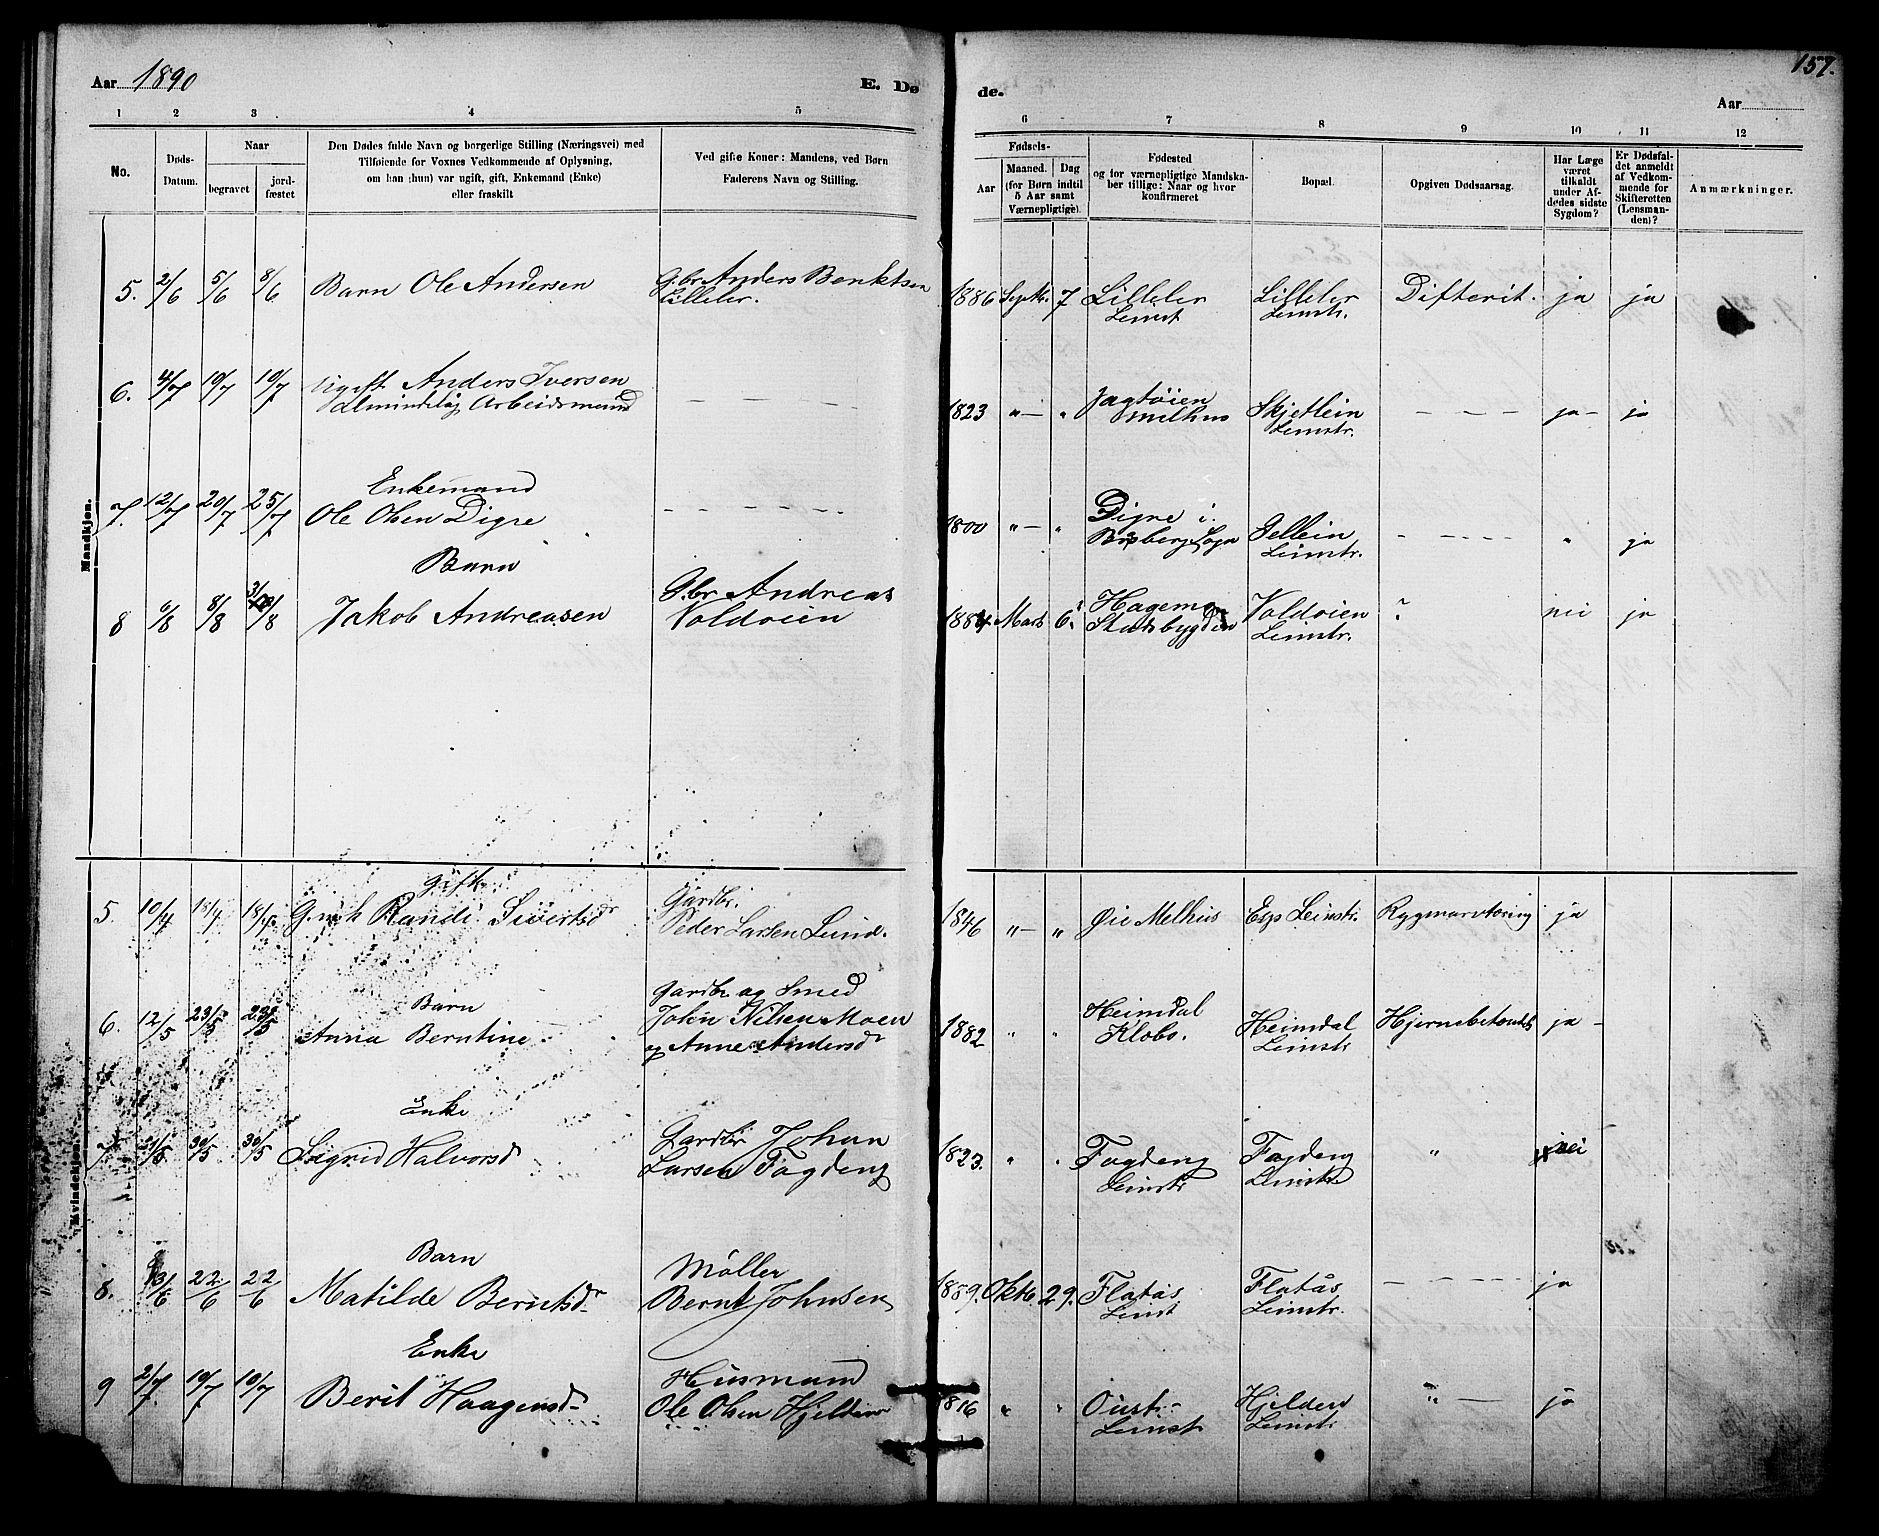 Aar 1890
E. Dø
de.
157.
Aar
1 2 3 4 5
6 7 8 9 10 11 12
No.
Døds-
Datum.
Naar
begravet
jord-
fæstet
Den Dødes fulde Navn og borgerlige Stilling (Næringsvei) med
Tilføiende for Voxnes Vedkommende af Oplysning,
om han (hun) var ugift, gift, Enkemand (Enke)
eller fraskilt
Ved gifte Koner: Mandens, ved Børn
Faderens Navn og Stilling.
Fødsels-
Aar
Maaned. Dag
(for Børn indtil
5 Aar samt
Værnepligtige).
Fødested
og for værnepligtige Mandska-
ber tillige: Naar og hvor
konfirmeret
Bopæl.
Opgiven Dødsaarsag.
Har Læge
været
tilkaldt
under Af-
dødes sidste
Sygdom?
Er Dødsfal-
det anmeldt
af Vedkom-
mende for
Skifteretten
(Lensman-
den)?
Anmærkninger.
Mandkjøn.
5. 2/6 5/6 8/6 Barn Ole Andersen Gbr Anders Benktsen
Lilleler.
1886 Septbr. 7 Lilleler Lilleler Difterit. ja ja
Leinst Leinstr.
6. 4/7 10/7 10/7 Ugift Anders Iversen
Almindelig Arbeidsmand — — — — —
1823 " — " Jagtøien Skjetlein — — — — ja — ja
Melhus Leinstr.
Enkemand
7. 12/7 20/7 25/7 Ole Olsen Digre — — — — —
1800 " — " Digre i Gellein — — — — " ja
Sogn Leinstr.
Barn
8 6/8 8/8 Jakob Andreasen Gbr Andreas
Voldøien
1884. Marts 6 Voldøien ? nei ja
Stadsbygden Leinstr.
Kvindekjøn.
gift
5. 10/4 18/4 18/4 Randi Sivertsdr Gardbr.
Peder Larsen Leind.
1846 " — " Øie Melhus Esp Leinstr. Rygmarvtæring ja
Barn
6. 12/5 23/5 23/5 Anna Berntine Gardbr og Smed
John Nilsen Moen
og Anne Andersdr
1882 " " Heimdal Heimdal ja —
Klæbo. Leinstr.
Enke
7 21/5 30/5 30/5 Sigrid Halvorsd Gardbr Johan
Larsen Fagdeng
1823. " " Fagdeng Fagdeng " nei
Leinstr Leinstr
Barn
8. 13/6 22/6 22/6 Matilde Berntsdr Møller
Bernt Johnsen
1889. Oktb 29. Flatås Flatås — — — — ja
Leinst Leinstr.
Enke
9 2/7 10/7 10/7 Berit Haagensdr Husmand
Ole Olsen Hjelden
1816 " " Oust Hjelden " — ja
Leinst Leinstr